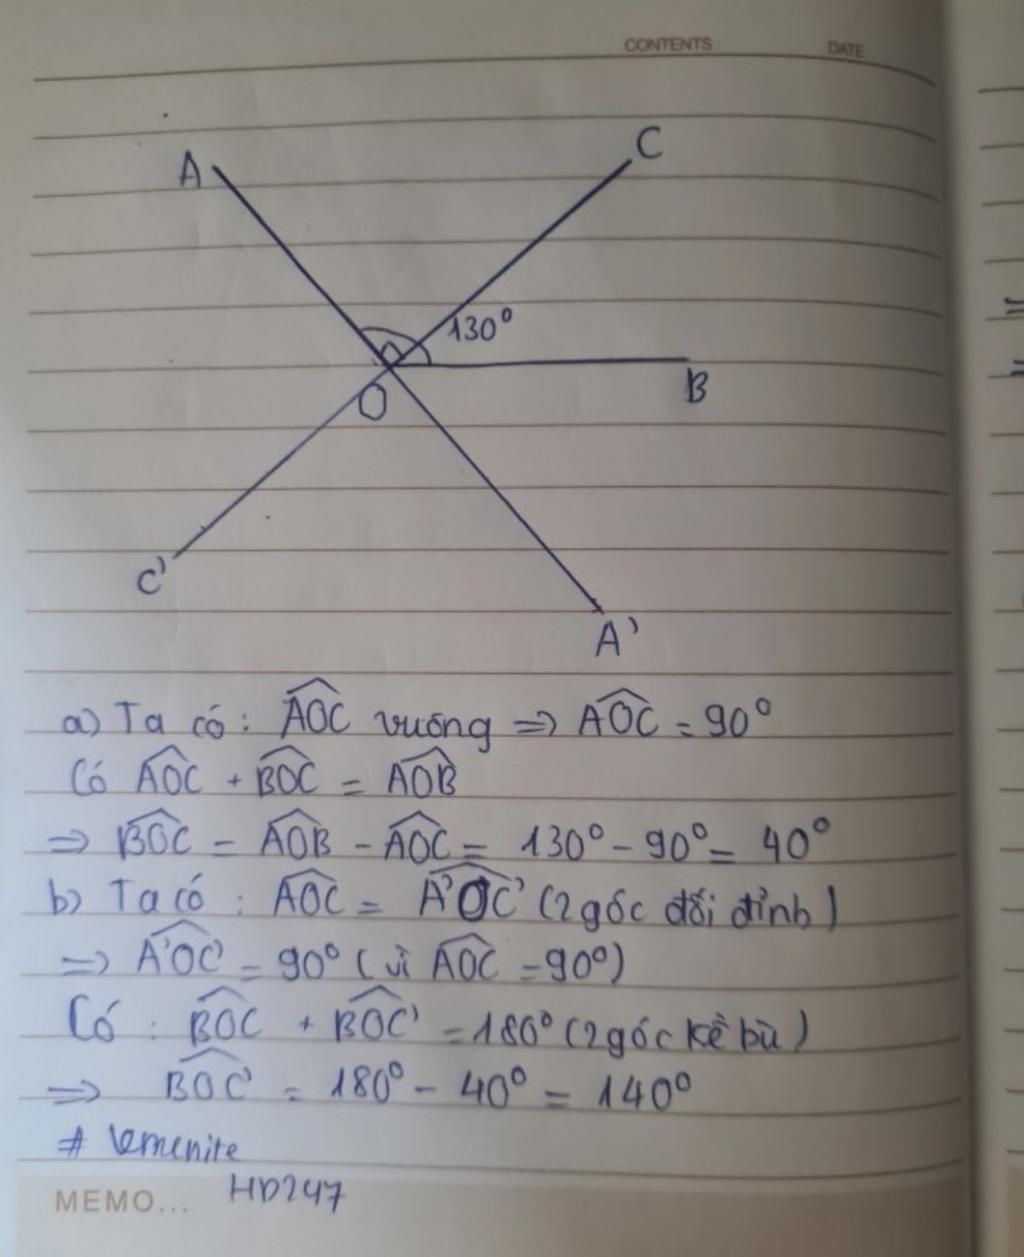 CONTENTS DATE
A
C
130°
B
O
C'
A'
a) Ta có: AOC vuông => AOC = 90°
Có AOC + BOC = AOB
=> BOC = AOB - AOC = 130° - 90° = 40°
b) Ta có: AOC = A'OC' (2 góc đối đỉnh)
=> A'OC' = 90° (vì AOC = 90°)
Có: BOC + BOC' = 180° (2 góc kề bù)
=> BOC' = 180° - 40° = 140°
#
HD247
MEMO...